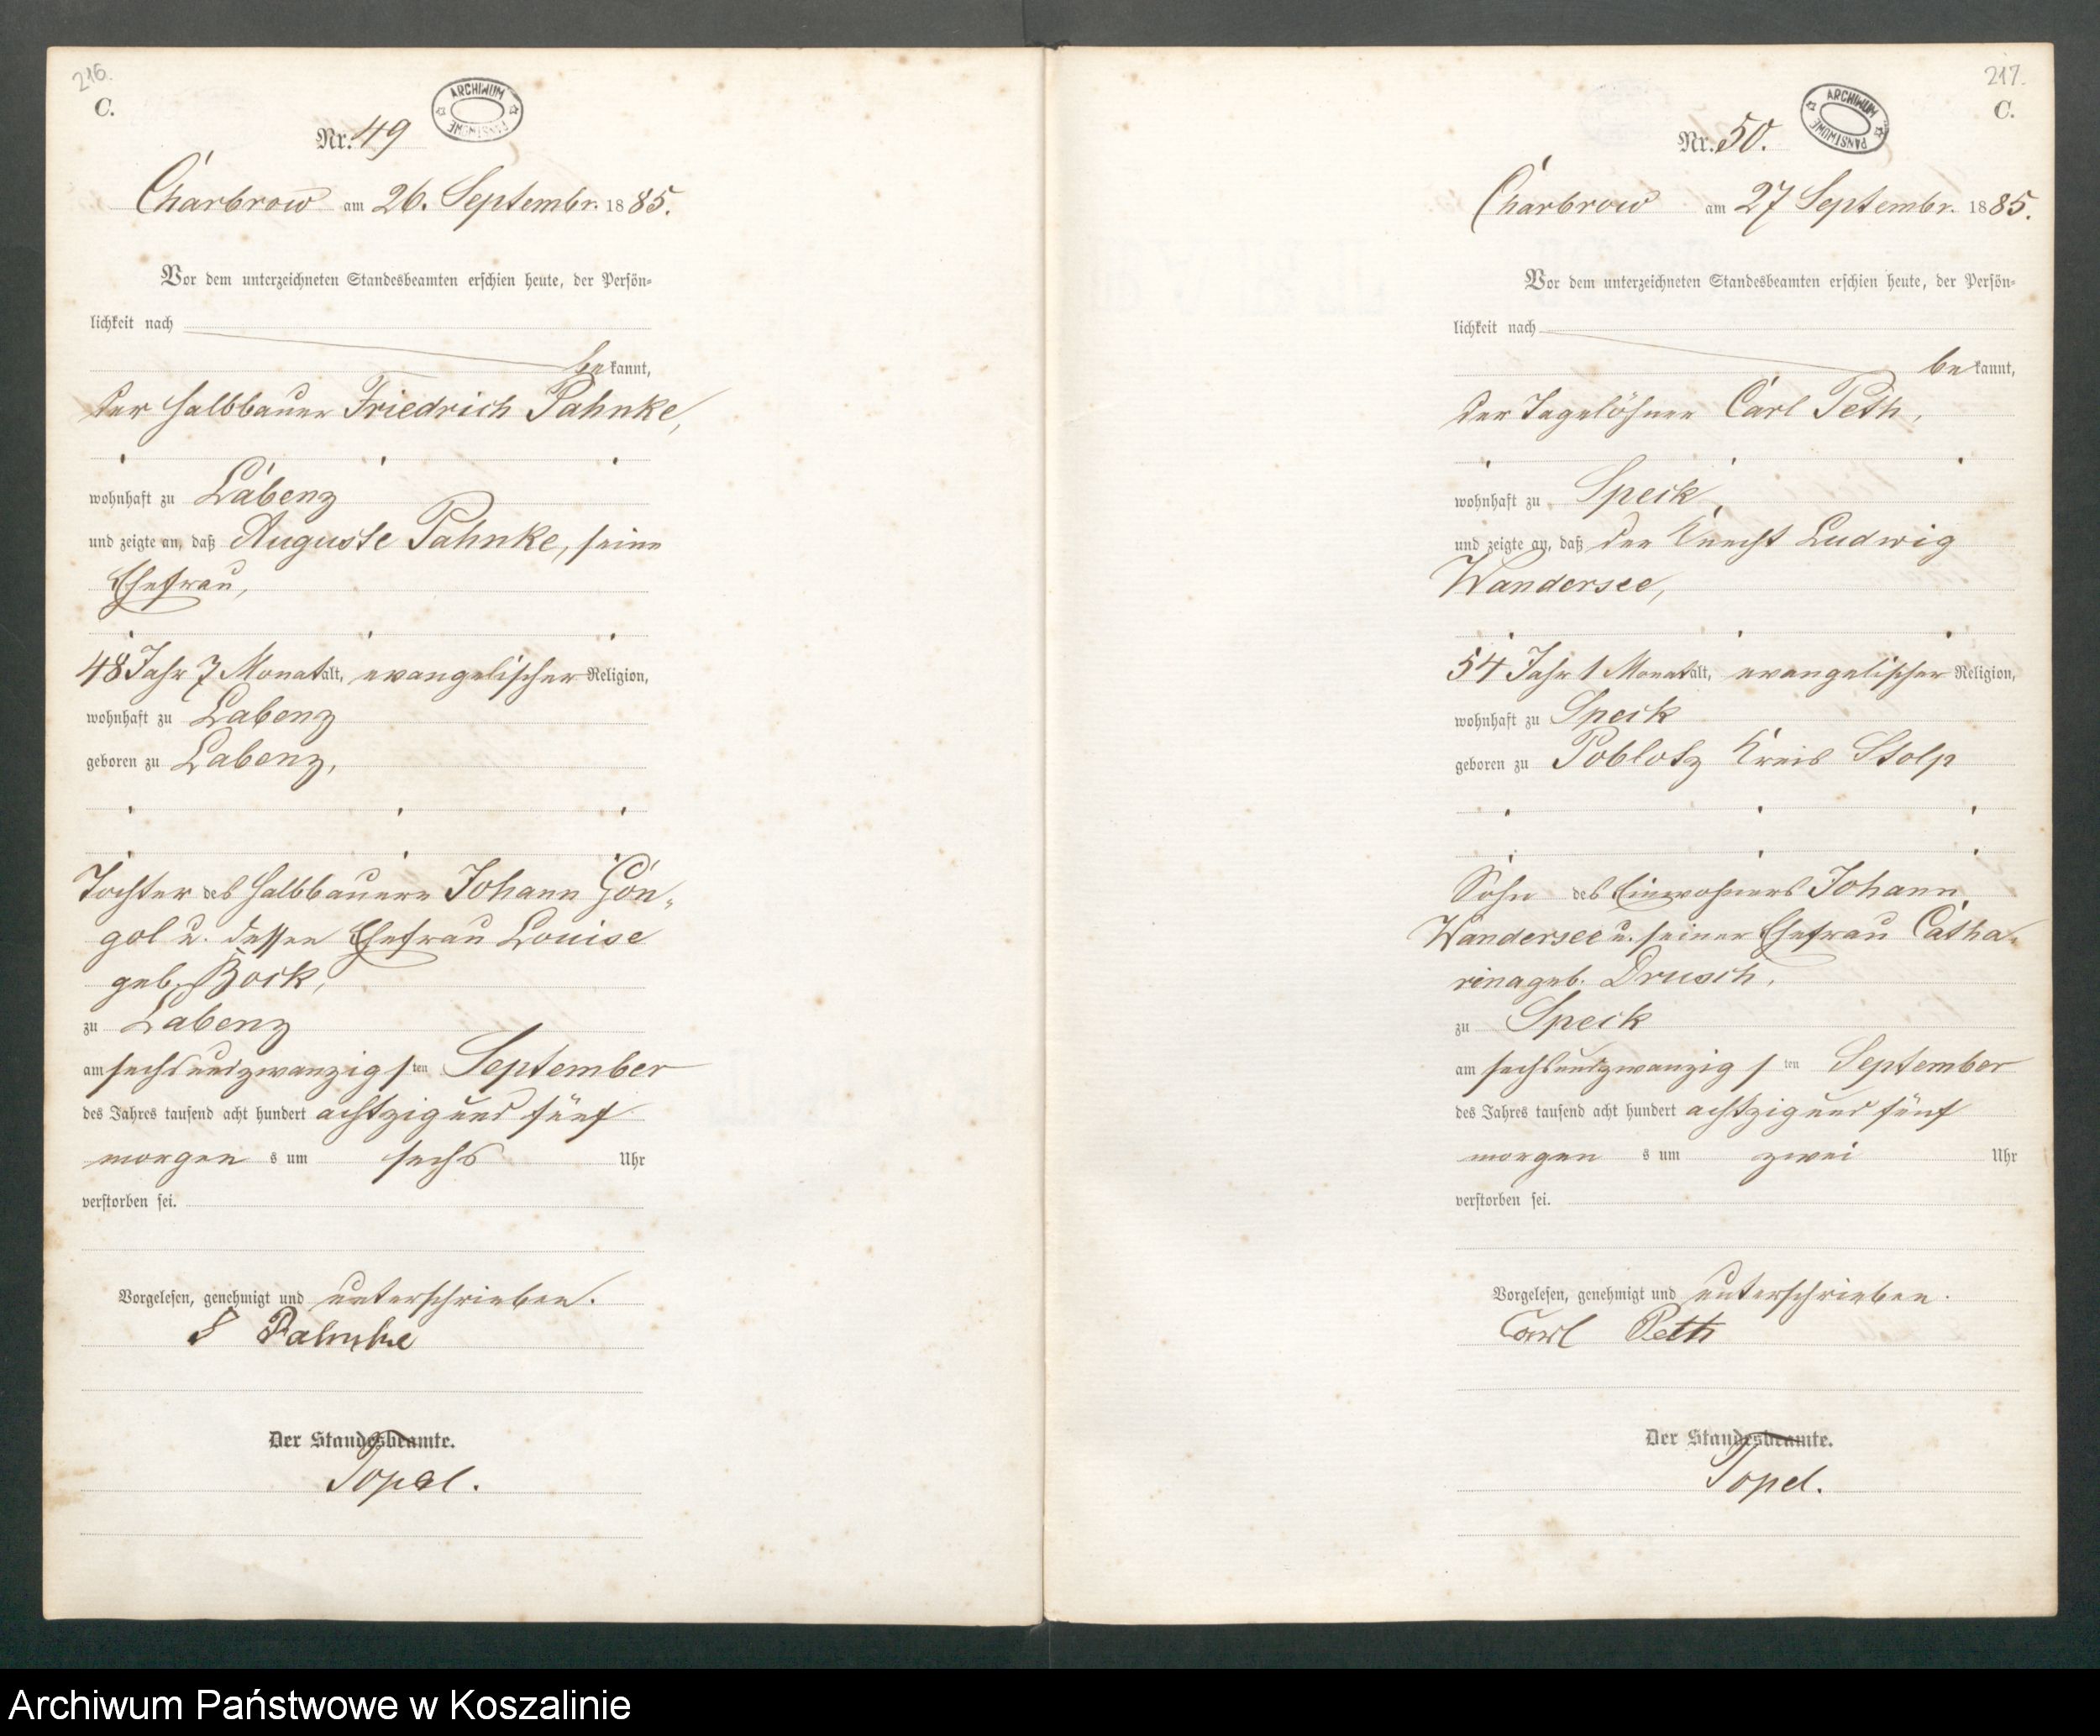 216.
C.
ARCHIWUM PAŃSTWOWE
Nr. 49
Charbrow am 26. Septembr. 1885.
Vor dem unterzeichneten Standesbeamten erschien heute, der Persön-
lichkeit nach
bekannt,
der Halbbauer Friedrich Pahnke,
wohnhaft zu Labenz
und zeigte an, daß Auguste Pahnke, seine
Ehefrau,
48 Jahr 7 Monat alt, evangelischer Religion,
wohnhaft zu Labenz
geboren zu Labenz,
Tochter des Halbbauern Johann Gön-
gol u. dessen Ehefrau Louise
geb. Bock,
zu Labenz
am sechsundzwanzigsten September
des Jahres tausend acht hundert achtzig und fünf
morgens um sechs Uhr
verstorben sei.
Vorgelesen, genehmigt und unterschrieben.
F Pahnke
Der Standesbeamte.
Topel.
217.
C.
ARCHIWUM PAŃSTWOWE
Nr. 50.
Charbrow am 27 Septembr. 1885.
Vor dem unterzeichneten Standesbeamten erschien heute, der Persön-
lichkeit nach
bekannt,
der Tagelöhner Carl Peth,
wohnhaft zu Speck,
und zeigte an, daß der Knecht Ludwig
Wandersee,
54 Jahr 1 Monat alt, evangelischer Religion,
wohnhaft zu Speck
geboren zu Poblotz Kreis Stolp
Sohn des Einwohners Johann
Wandersee u. seiner Ehefrau Catha-
rina geb. Drusch,
zu Speck
am sechsundzwanzigsten September
des Jahres tausend acht hundert achtzig und fünf
morgens um zwei Uhr
verstorben sei.
Vorgelesen, genehmigt und unterschrieben.
Carl Peth
Der Standesbeamte.
Topel.
Archiwum Państwowe w Koszalinie